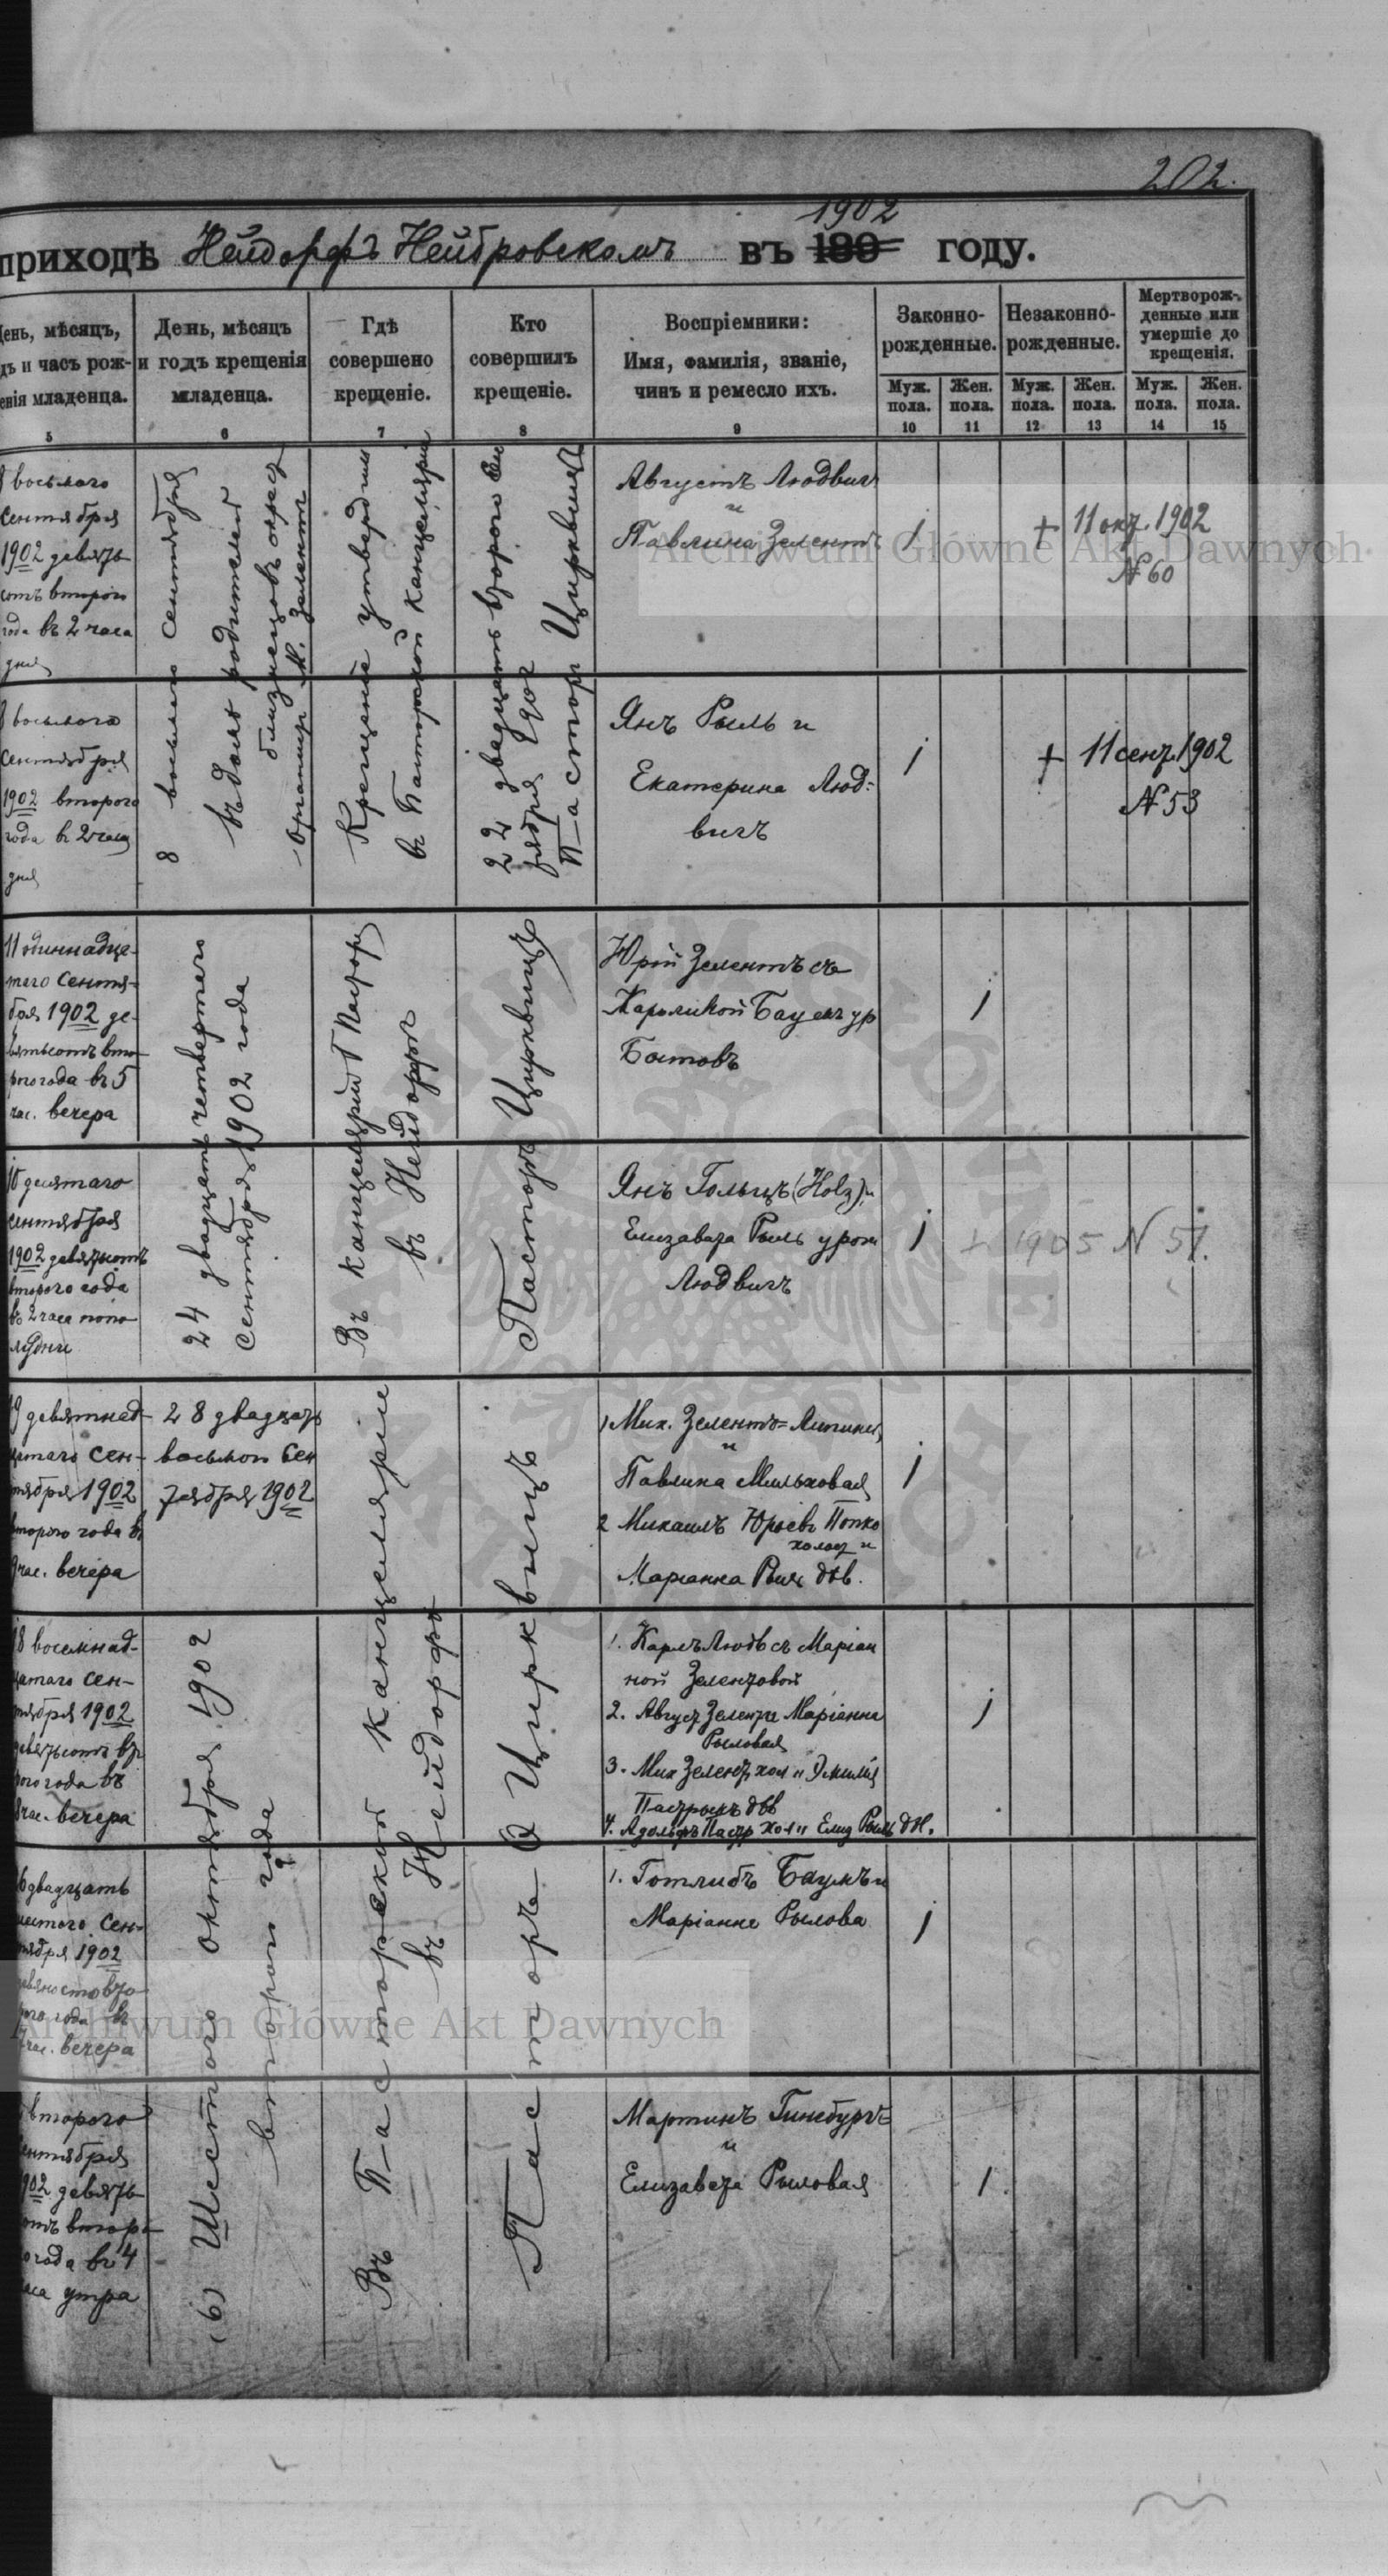 202.
приходѣ Нейдорфъ Нейбровскомъ въ 189 1902 году.
День, мѣсяцъ,
дъ и часъ рож-
енія младенца.
5
День, мѣсяцъ
и годъ крещенія
младенца.
6
Гдѣ
совершено
крещеніе.
7
Кто
совершилъ
крещеніе.
8
Воспріемники:
Имя, фамилія, званіе,
чинъ и ремесло ихъ.
9
Законно-
рожденные.
Муж.
пола.
10
Жен.
пола.
11
Незаконно-
рожденные.
Муж.
пола.
12
Жен.
пола.
13
Мертворож-
денные или
умершіе до
крещенія.
Муж.
пола.
14
Жен.
пола.
15
8 восьмого
сентября
1902 девять
сотъ второго
года въ 2 часа
дня
8 восьмого сентября
въ домѣ родителей
близнецовъ
М. Зелентъ
Крещеніе утвердилъ
въ Пасторской канцеляріи
22 двадцать второго Сен
тября 1902
Пасторъ Цирквицъ
Августъ Людвигъ
и
Павлина Зелентъ
1
+ 11 окт. 1902
№ 60
8 восьмого
сентября
1902 второго
года въ 2 часа
дня
Янъ Рыль и
Екатерина Люд=
вигъ
1
+ 11 сент. 1902
№ 53
11 одиннадца-
таго Сентя-
бря 1902 де-
вятьсотъ вто-
рого года въ 5
час. вечера
24 двадцать четвертаго
Сентября 1902 года
Въ канцеляріи Пастора
въ Нейдорфѣ
Пасторъ Цирквицъ
Юрій Зелентъ съ
Каролиной Баумъ ур
Бытовъ
1
10 десятаго
сентября
1902 девятьсотъ
второго года
въ 2 часа попо
лудни
Янъ Гольцъ (Holz) и
Елизавета Рыль урож
Людвигъ
1
+ 1905 N 51.
19 девятнад-
цатаго Сен-
тября 1902
второго года въ
9 час. вечера
28 двадцать
восьмого Сен
тября 1902
Въ Пасторской Канцеляріи
въ Нейдорфѣ
Пасторъ О Цирквицъ
1 Мих. Зелентъ=
и
Павлина Мильховая
2 Михаилъ Юрьевъ Попко
холост и
Маріанна Рыль дѣв.
1
18 восемнад-
цатаго Сен-
тября 1902
девятьсотъ вто
рого года въ
8 час. вечера
(6) Шестого октября 1902
второго года
1. Карлъ Людв съ Маріан
ной Зелентовой
2. Август Зелент и Маріанна
Рыловая
3. Мих Зелент хол и Эмилія
Пастрыкъ дѣв
4. Адольфъ Пастр хол и Елиз Рыль дѣ.
1
26 двадцать
шестого Сен-
тября 1902
девяносто вто
рого года въ
7 час. вечера
1. Готлибъ Баумъ и
Маріанна Рылова
1
второго
сентября
1902 девять
сотъ второ
го года въ 4
часа утра
Мартинъ Гинсбургъ
и
Елизавета Рыловая
1
Archiwum Główne Akt Dawnych
Archiwum Główne Akt Dawnych